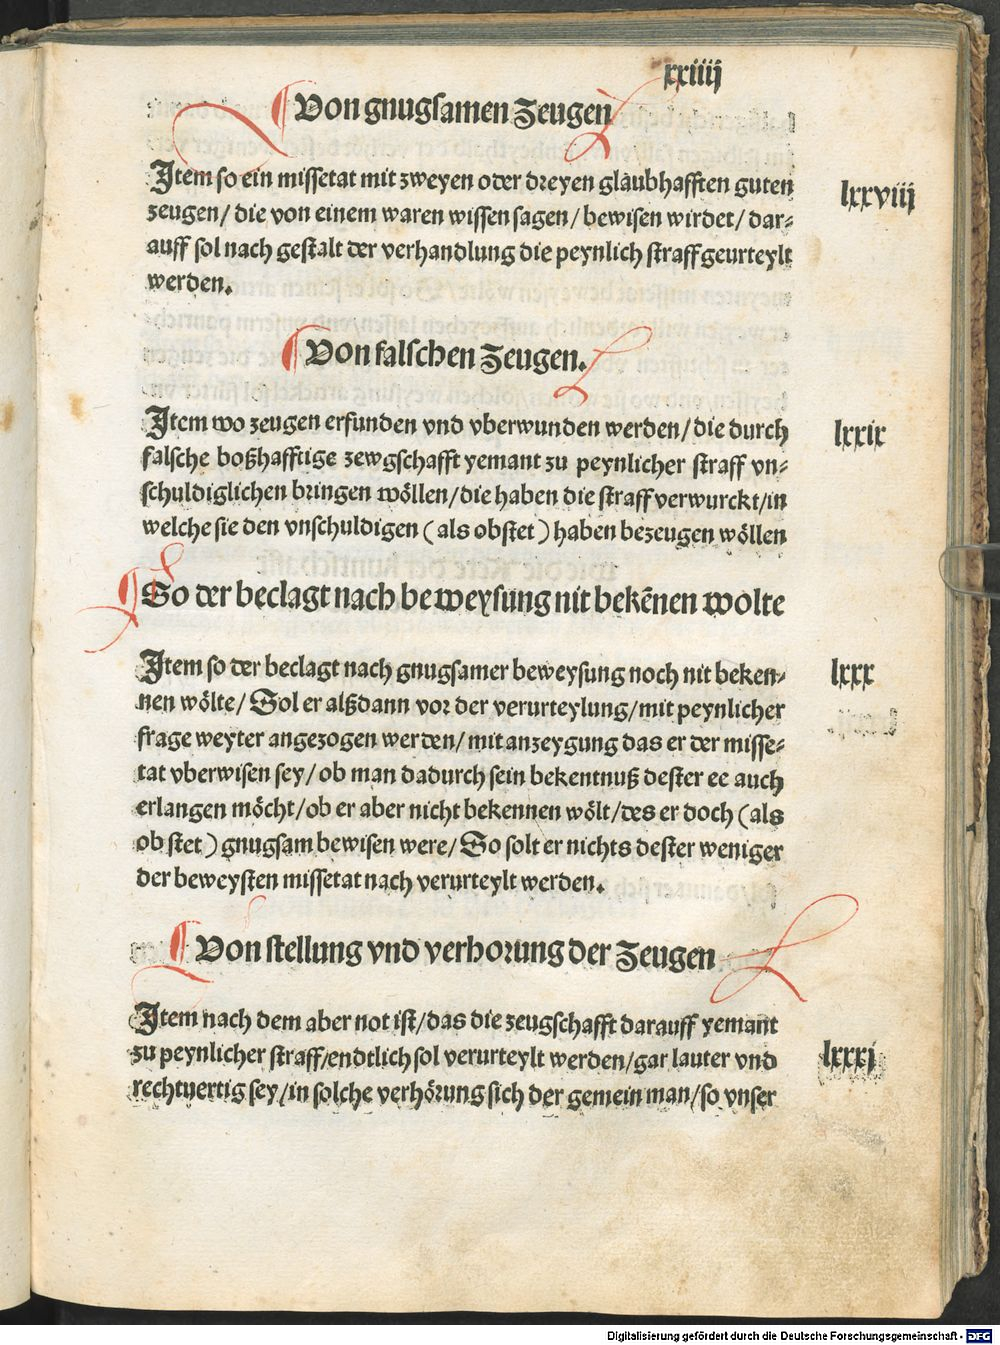 xxiiij
Von gnugsamen Zeugen
Item so ein missetat mit zweyen oder dreyen glaubhafften guten
zeugen/ die von einem waren wissen sagen/ bewisen wirdet/ dar-
auff sol nach gestalt der verhandlung die peynlich straff geurteylt
werden.
lxxviij
Von falschen Zeugen.
Item wo zeugen erfunden vnd vberwunden werden/ die durch
falsche boßhafftige zewgschafft yemant zu peynlicher straff vn-
schuldiglichen bringen wöllen/ die haben die straff verwurckt/ in
welche sie den vnschuldigen (als obstet) haben bezeugen wöllen
lxxix
So der beclagt nach beweysung nit bekēnen wolte
Item so der beclagt nach gnugsamer beweysung noch nit beken-
nen wölte/ Sol er alßdann vor der verurteylung/ mit peynlicher
frage weyter angezogen werden/ mit anzeygung das er der misse-
tat vberwisen sey/ ob man dadurch sein bekentnuß dester ee auch
erlangen möcht/ ob er aber nicht bekennen wölt/ des er doch (als
ob stet) gnugsam bewisen were/ So solt er nichts dester weniger
der beweysten missetat nach verurteylt werden.
lxxx
Von stellung vnd verhorung der Zeugen
Item nach dem aber not ist/ das die zeugschafft darauff yemant
zu peynlicher straff/ endtlich sol verurteylt werden/ gar lauter vnd
rechtuertig sey/ in solche verhörung sich der gemein man/ so vnser
lxxxj
Digitalisierung gefördert durch die Deutsche Forschungsgemeinschaft - DFG